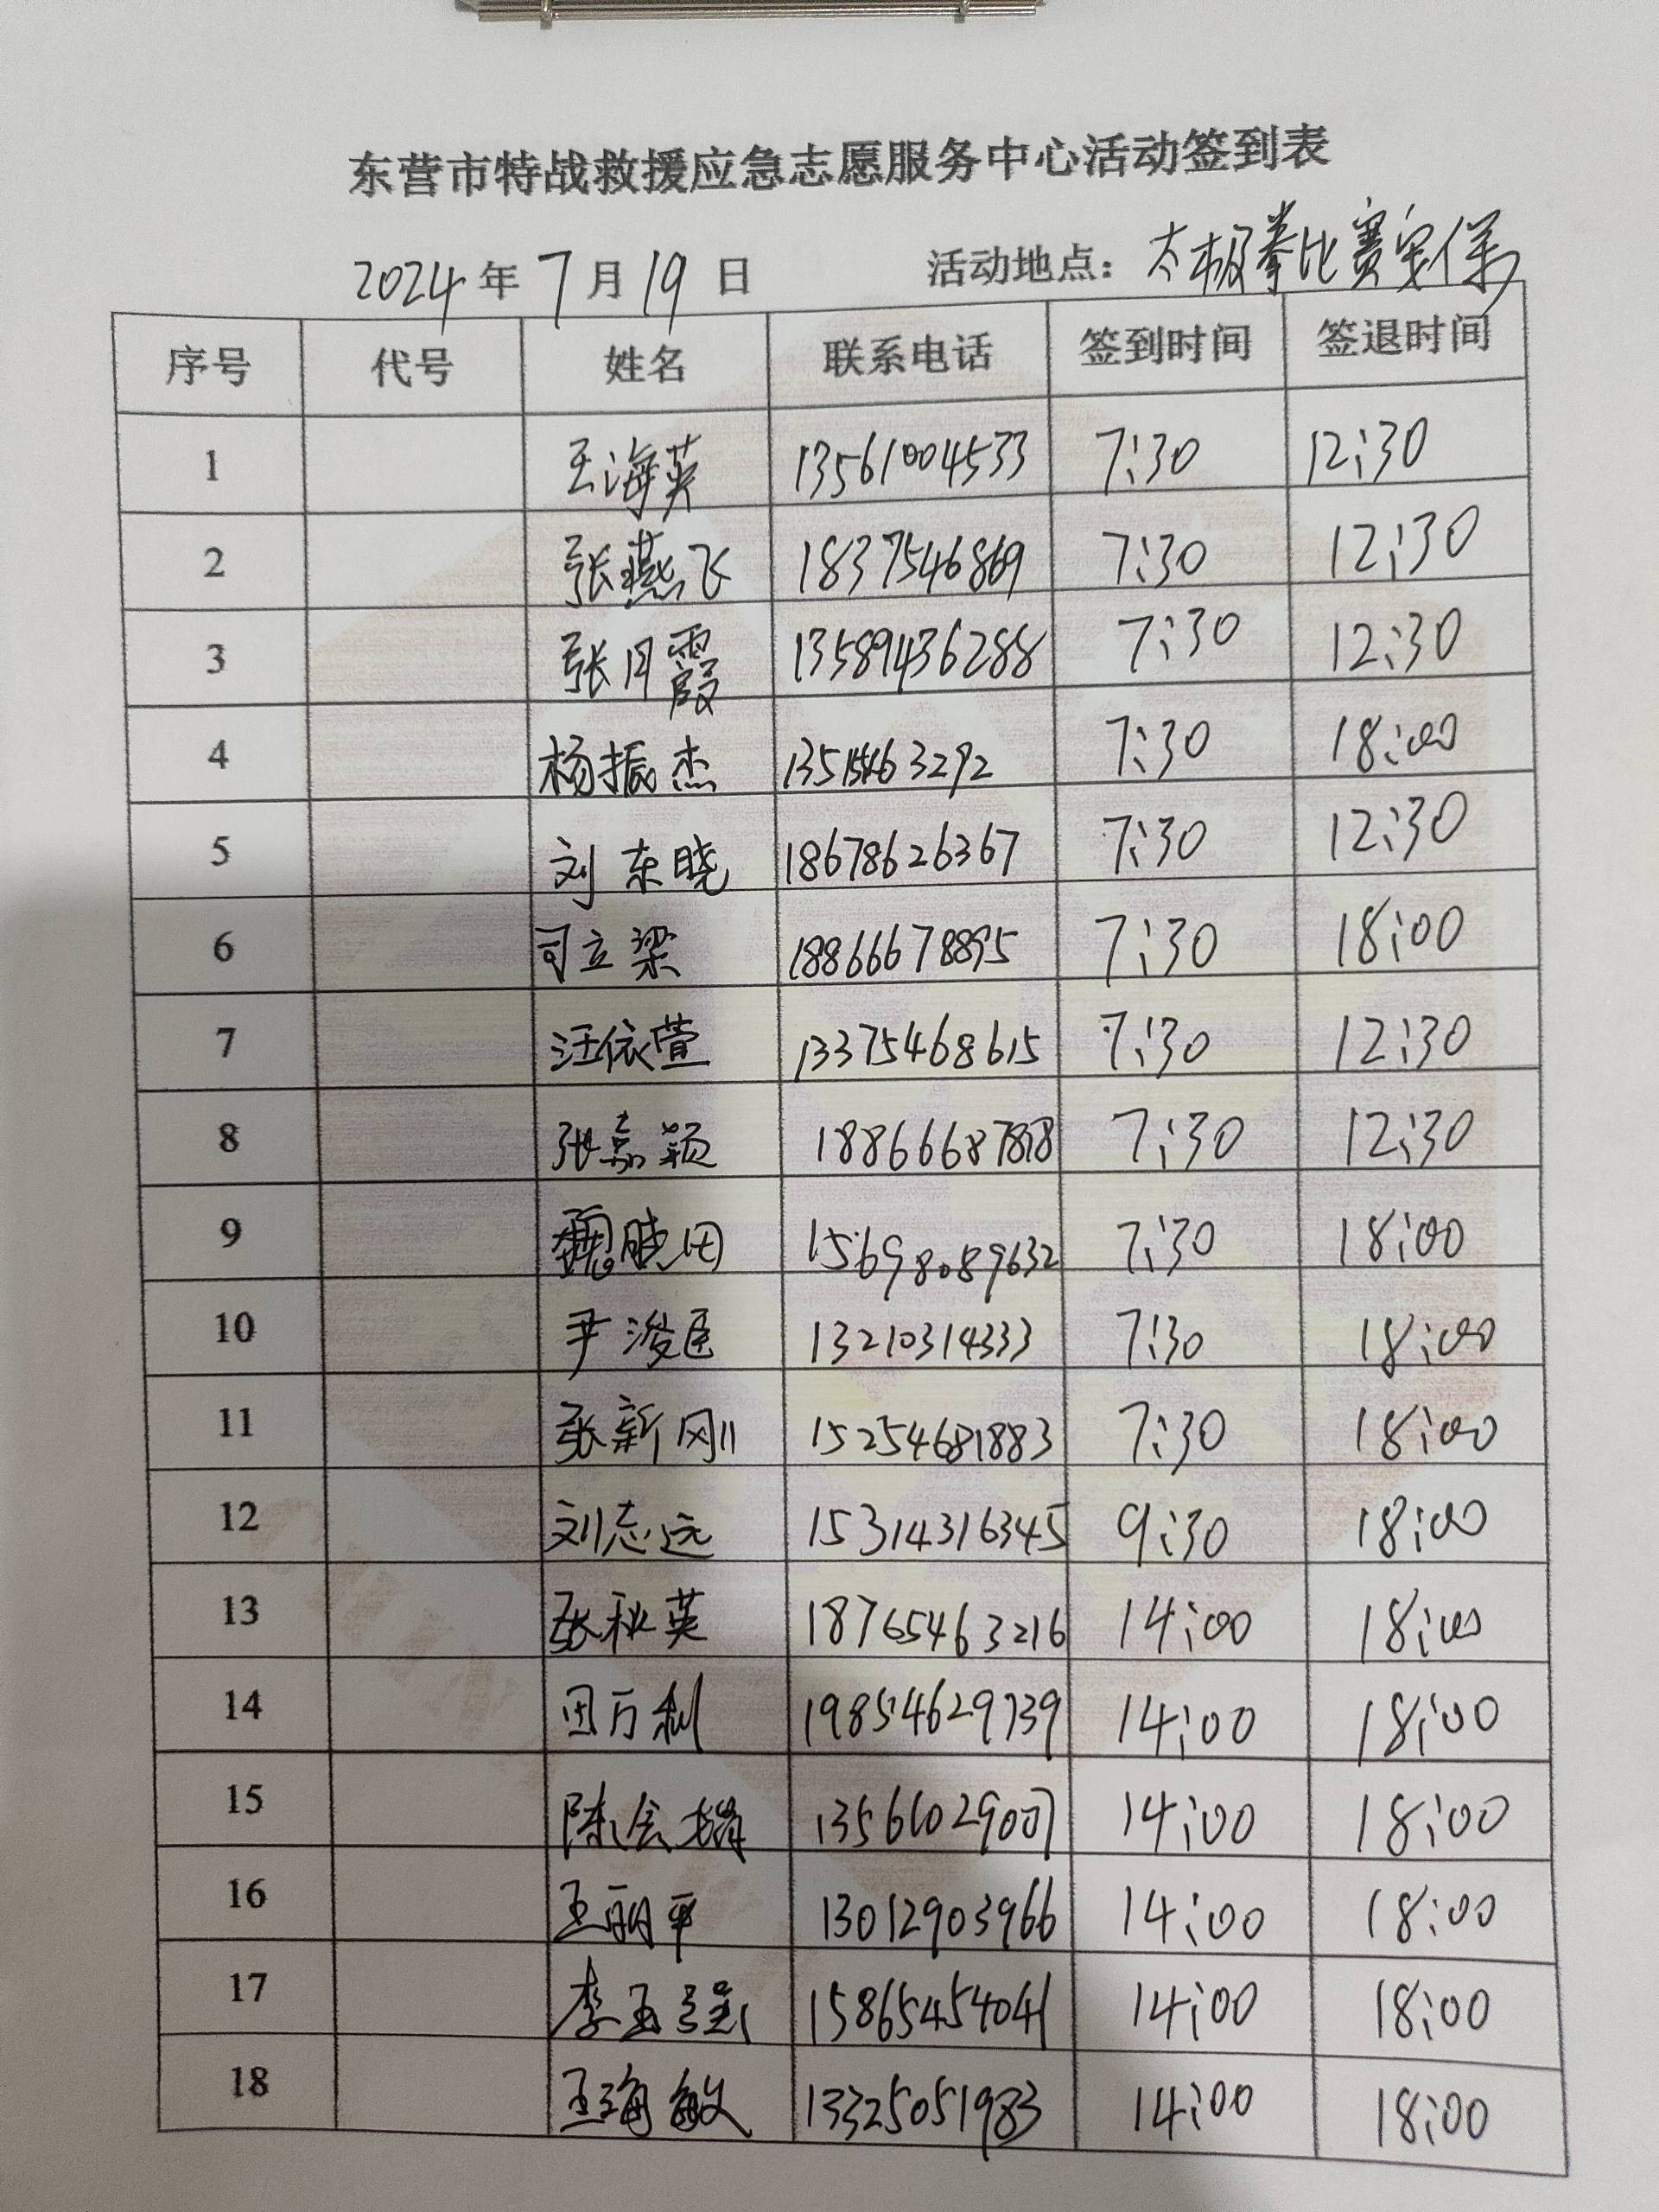 东营市特战救援应急志愿服务中心活动签到表
2024年7月19日 活动地点：太极拳比赛安保
序号 代号 姓名 联系电话 签到时间 签退时间
1 王海英 13561004533 7:30 12:30
2 张燕飞 1837546869 7:30 12:30
3 张月霞 13589436288 7:30 12:30
4 杨振杰 7:30 18:00
5 刘东晓 18678626367 7:30 12:30
6 司立梁 18866678895 7:30 18:00
7 汪依萱 13375468615 7:30 12:30
8 张嘉颖 18866687878 7:30 12:30
9 魏晓田 15698089632 7:30 18:00
10 尹浚臣 13210314333 7:30 18:00
11 张新刚 15254681883 7:30 18:00
12 刘志远 15314316345 9:30 18:00
13 张秋英 18765463216 14:00 18:00
14 田万利 19854629739 14:00 18:00
15 陈会 13561029007 14:00 18:00
16 王丽平 13012903966 14:00 18:00
17 李玉强 15865454041 14:00 18:00
18 王海敏 13325051983 14:00 18:00